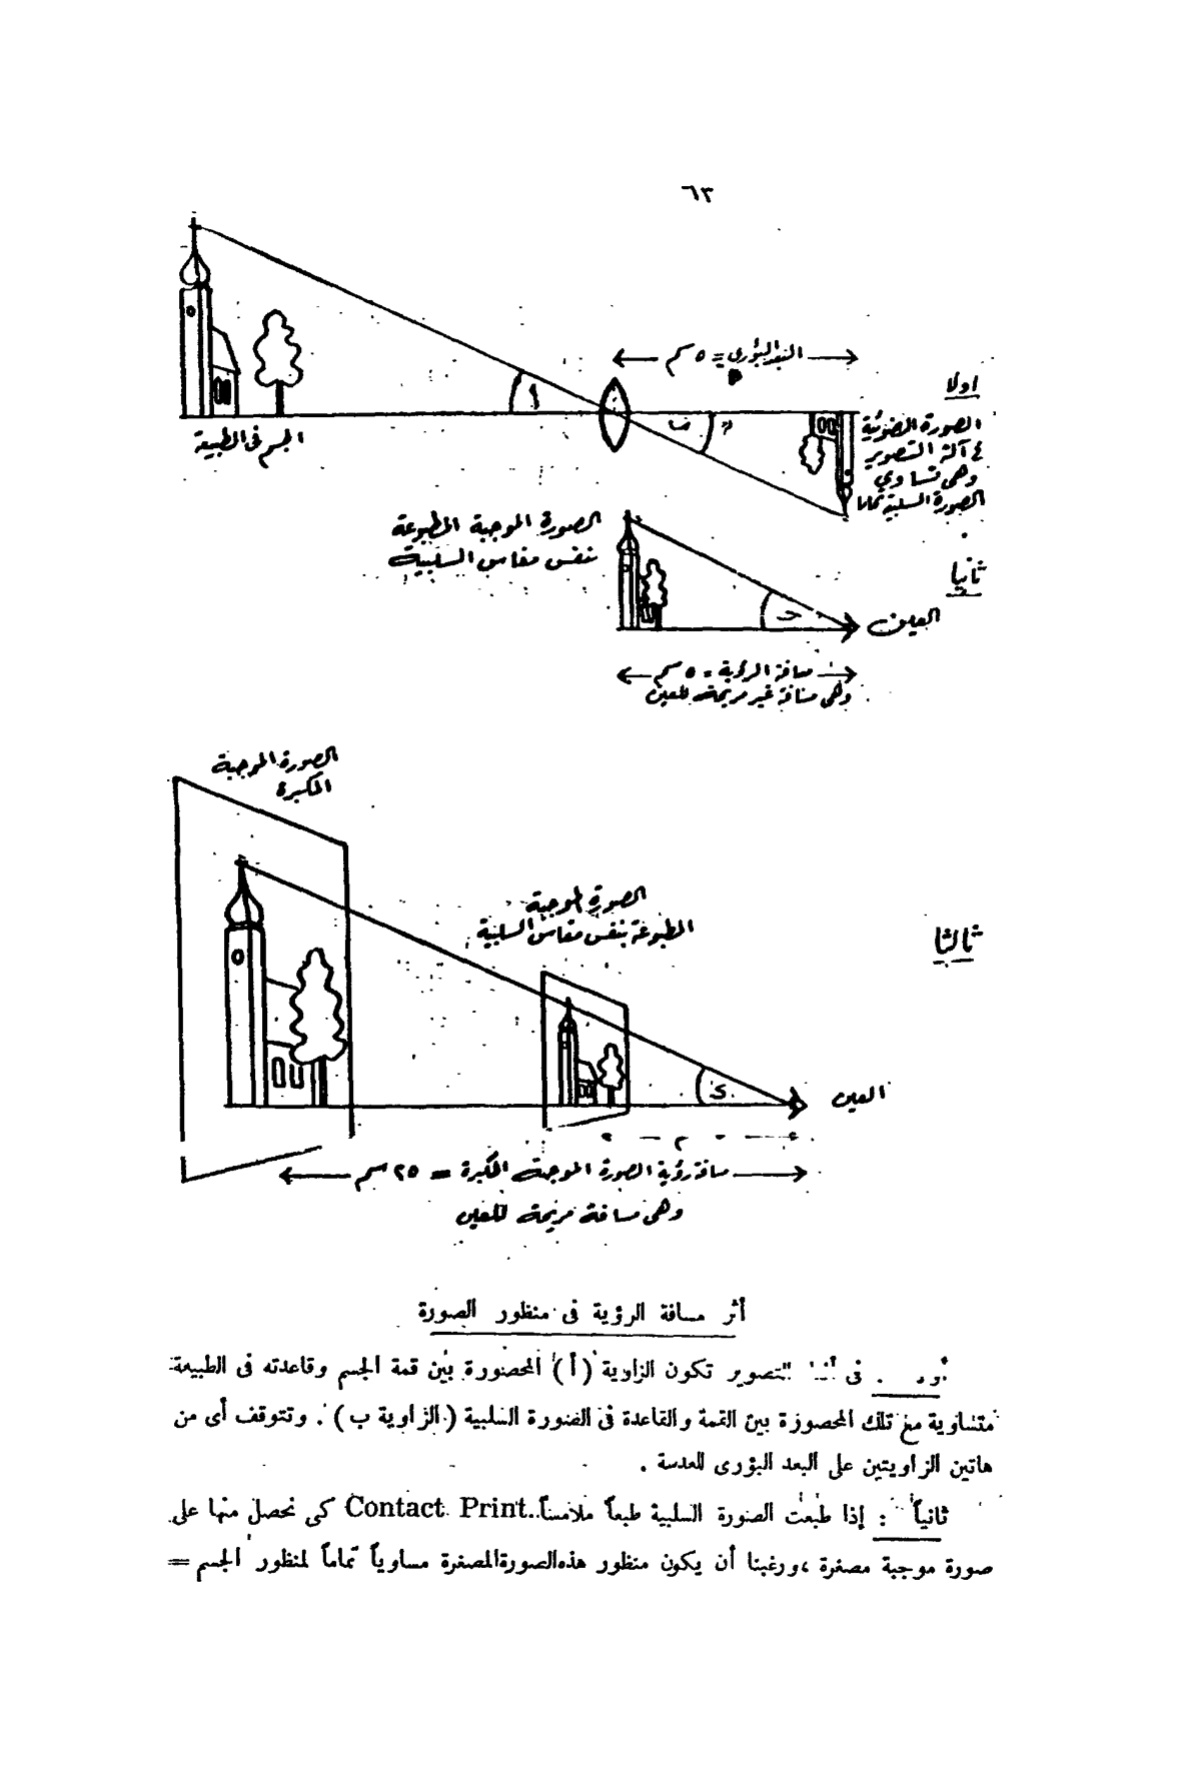 ٦٣
البعد البؤرى = ٥ سم
أولا
الصورة الضوئية
آلة التصوير
وهى تساوي
الصورة السلبية تماما
أ
ب
الجسم فى الطبيعة
ثانيا
الصورة الموجبة المطبوعة
بنفس مقاس السلبية
ح
العين
مسافة الرؤية = ٥ سم
وهى مسافة غير مريحة للعين
الصورة الموجبة
المكبرة
ثالثا
الصورة الموجبة
المطبوعة بنفس مقاس السلبية
ى
العين
مسافة رؤية الصورة الموجبة المكبرة = ٢٥ سم
وهى مسافة مريحة للعين
أثر مسافة الرؤية فى منظور الصورة
فى التصوير تكون الزاوية (أ) المحصورة بين قمة الجسم وقاعدته فى الطبيعة
متساوية مع تلك المحصورة بين القمة والقاعدة فى الصورة السلبية (الزاوية ب) . وتتوقف أى من
هاتين الزاويتين على البعد البؤرى للعدسة .
ثانياً : إذا طبعت الصورة السلبية طبعاً ملامساً Contact Print كى نحصل منها على
صورة موجبة مصغرة ، ورغبنا أن يكون منظور هذه الصورة المصغرة مساوياً تماماً لمنظور الجسم =